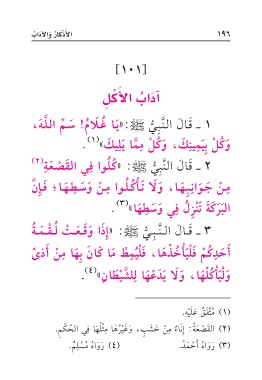 ١٩٦ الأَذْكَارُ وَالآدَابُ
[١٠١]
آدَابُ الأَكْلِ
١ ـ قَالَ النَّبِيُّ ﷺ: «يَا غُلَامُ! سَمِّ اللَّهَ،
وَكُلْ بِيَمِينِكَ، وَكُلْ مِمَّا يَلِيكَ»(١).
٢ ـ قَالَ النَّبِيُّ ﷺ: «كُلُوا فِي القَصْعَةِ(٢)
مِنْ جَوَانِبِهَا، وَلَا تَأْكُلُوا مِنْ وَسَطِهَا؛ فَإِنَّ
البَرَكَةَ تَنْزِلُ فِي وَسَطِهَا»(٣).
٣ ـ قَالَ النَّبِيُّ ﷺ: «إِذَا وَقَعَتْ لُقْمَةُ
أَحَدِكُمْ فَلْيَأْخُذْهَا، فَلْيُمِطْ مَا كَانَ بِهَا مِنْ أَذىً
وَلْيَأْكُلْهَا، وَلَا يَدَعْهَا لِلشَّيْطَانِ»(٤).
(١) مُتَّفَقٌ عَلَيْهِ.
(٢) القَصْعَةُ: إِنَاءٌ مِنْ خَشَبٍ، وَغَيْرُهَا مِثْلُهَا فِي الحُكْمِ.
(٣) رَوَاهُ أَحْمَدُ. (٤) رَوَاهُ مُسْلِمٌ.